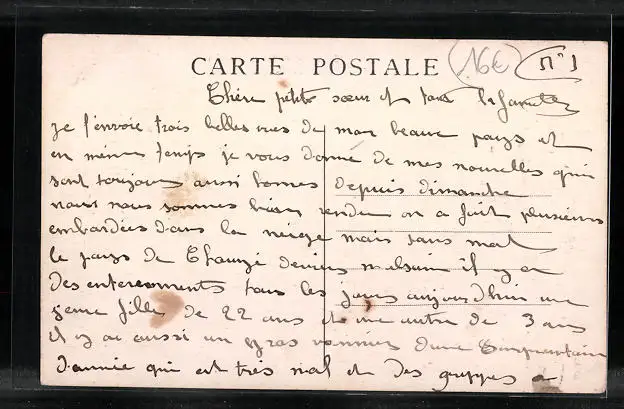 CARTE POSTALE
16€
N° 1
Chère petite sœur et toute la famille
je t'envoie trois belles vues de mon beau pays et
en même temps je vous donne de mes nouvelles qui
sont toujours aussi bonnes depuis dimanche
nous nous sommes bien rendu on a fait plusieurs
embardées dans la neige mais sans mal
le pays de devient malsain il y a
des enterrements tous les jours aujourd'hui une
jeune fille de 22 ans et une autre de 3 ans
il y a aussi un gros vannier d'une cinquantaine
d'année qui est très mal et des grippes a